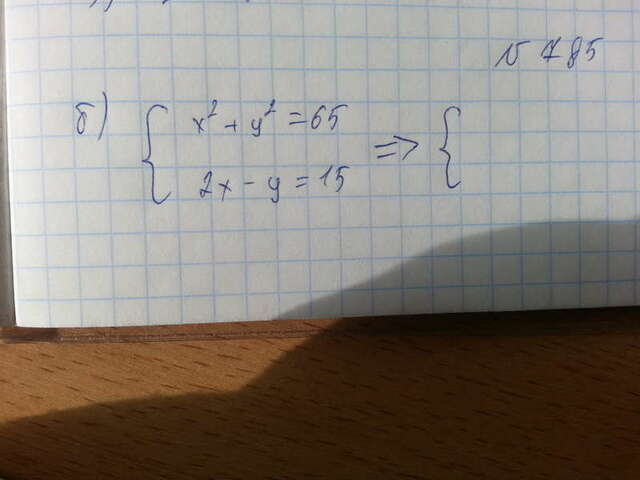 № 785
б) { x² + y² = 65
2x - y = 15 => {